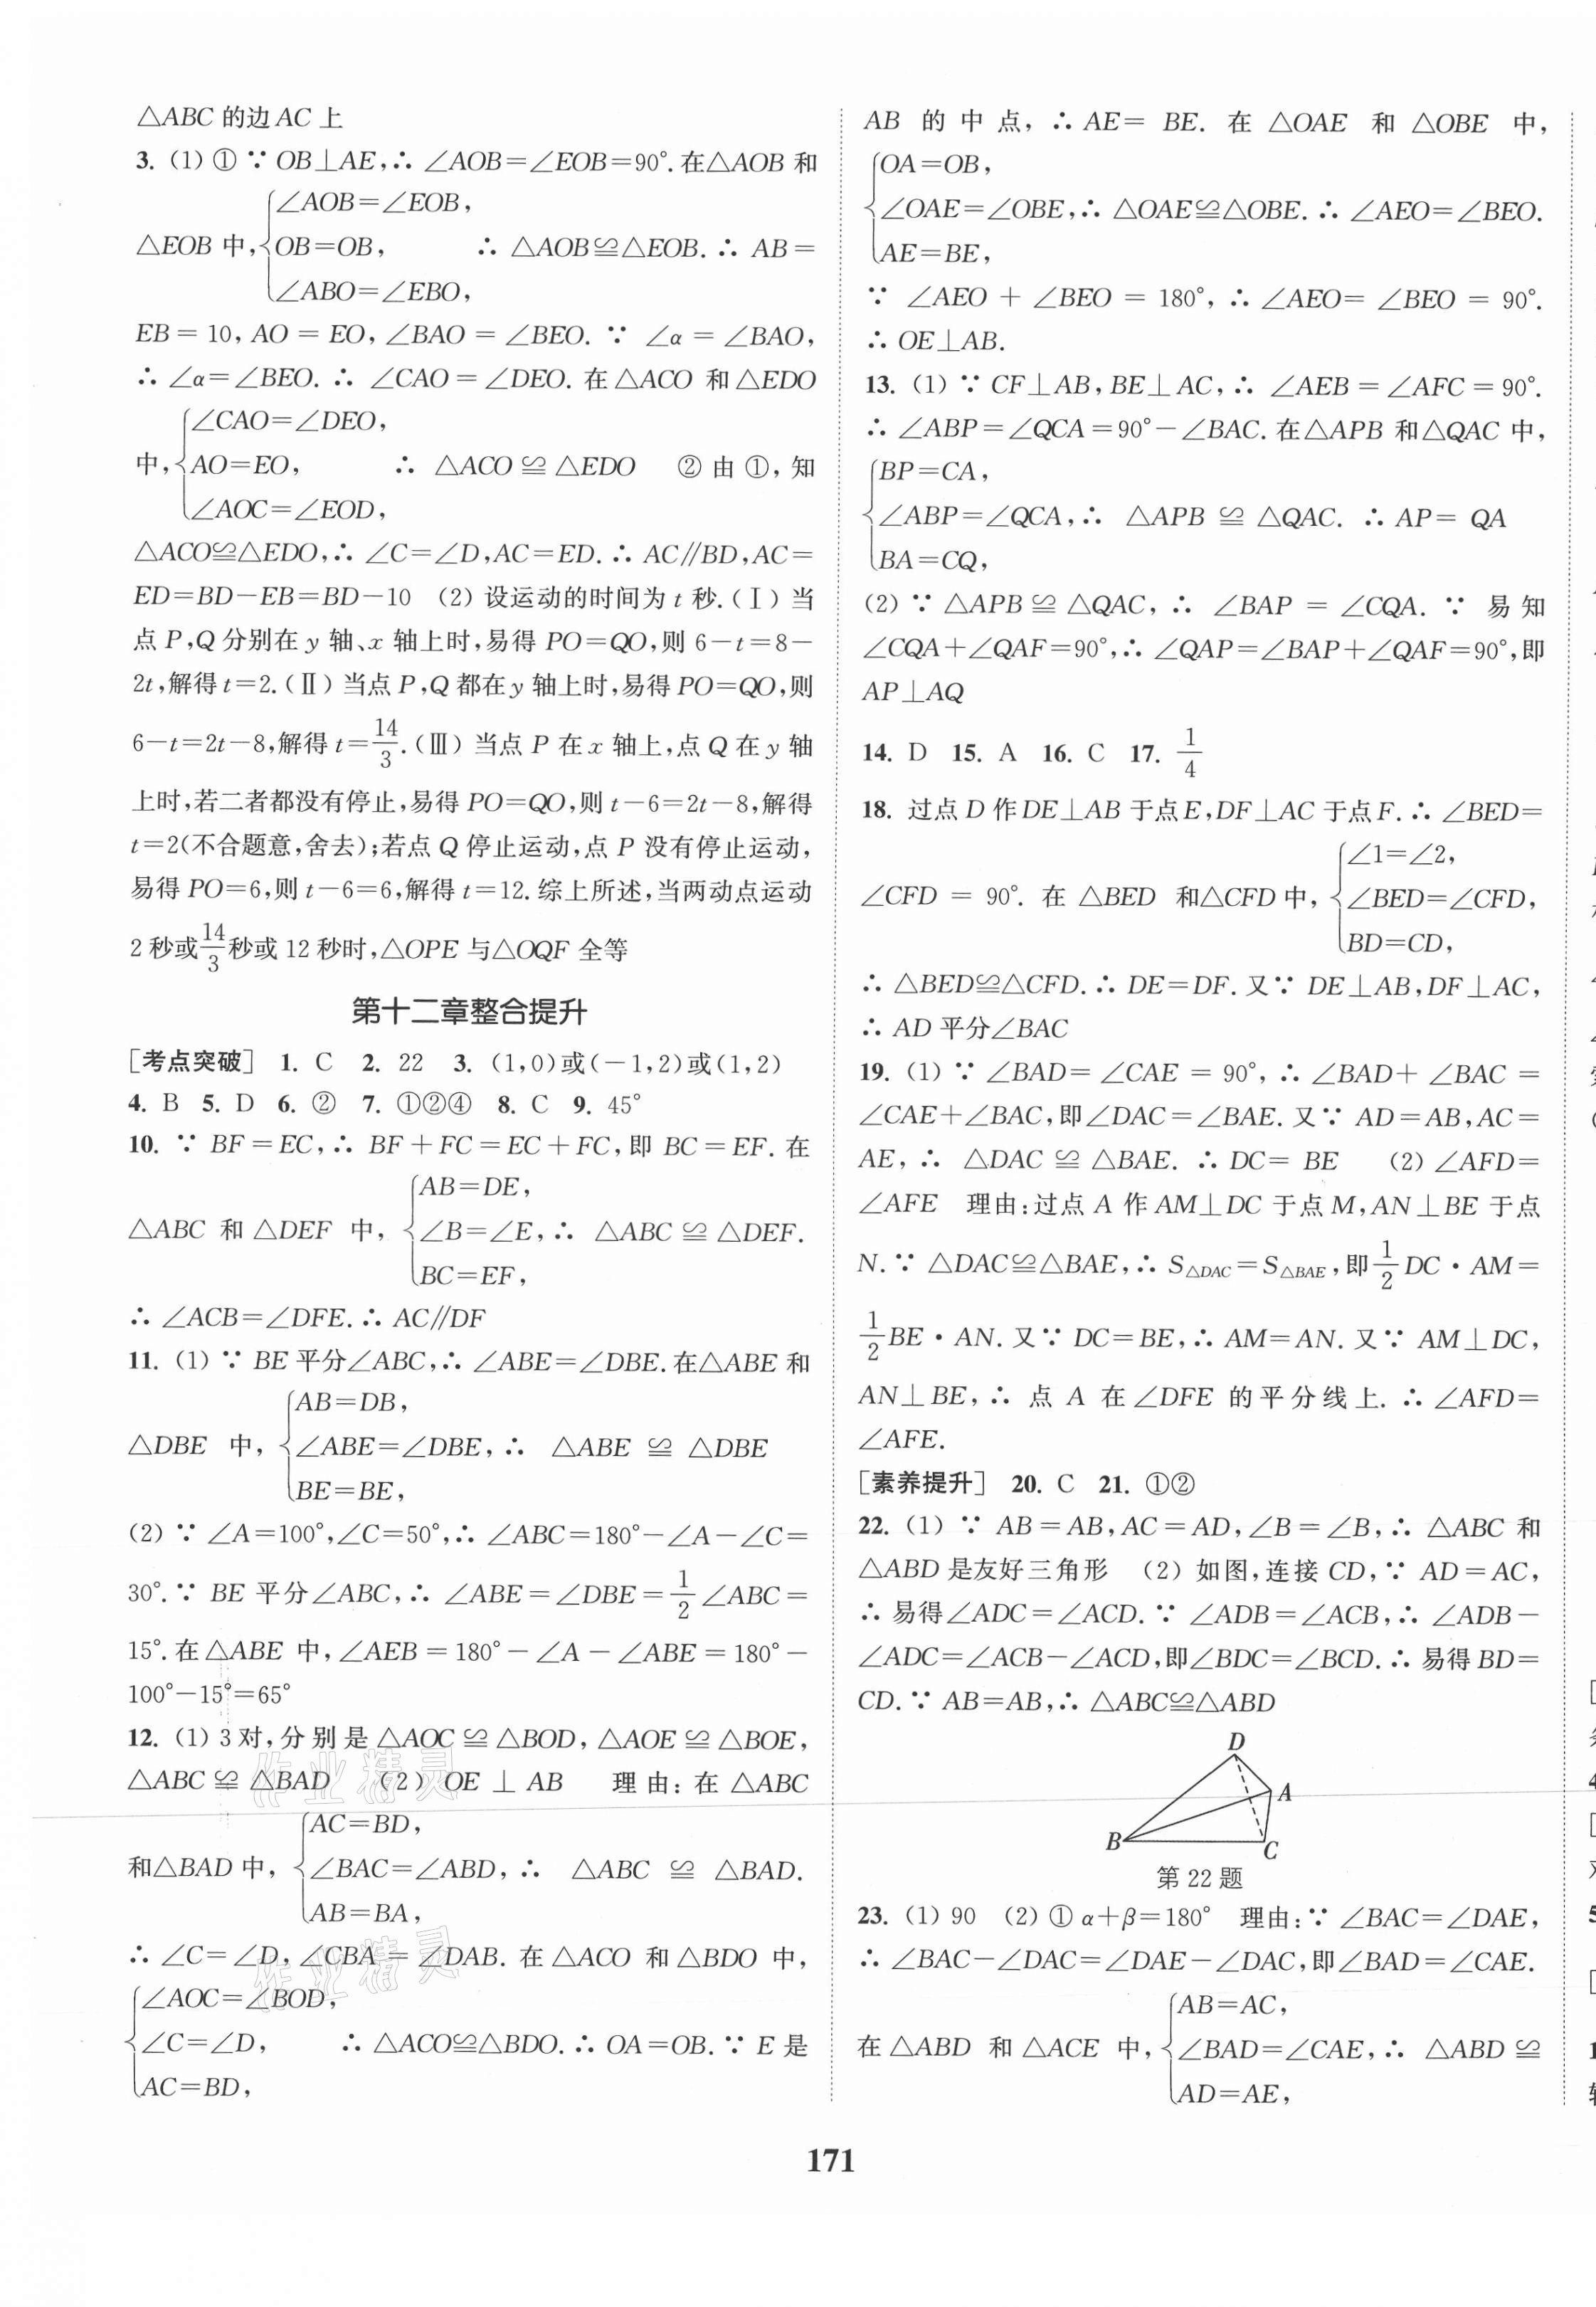 △ABC 的边 AC 上
3. (1) ① ∵ OB⊥AE,∴ ∠AOB=∠EOB=90°. 在△AOB 和
∠AOB=∠EOB,
△EOB 中, OB=OB, ∴ △AOB≌△EOB. ∴ AB=
∠ABO=∠EBO,
EB=10, AO=EO, ∠BAO=∠BEO. ∵ ∠α=∠BAO,
∴ ∠α=∠BEO. ∴ ∠CAO=∠DEO. 在△ACO 和△EDO
∠CAO=∠DEO,
中, AO=EO, ∴ △ACO≌△EDO ② 由①,知
∠AOC=∠EOD,
△ACO≌△EDO,∴ ∠C=∠D,AC=ED. ∴ AC∥BD,AC=
ED=BD-EB=BD-10 (2) 设运动的时间为 t 秒. (Ⅰ) 当
点 P,Q 分别在 y 轴、x 轴上时,易得 PO=QO,则 6-t=8-
2t,解得 t=2. (Ⅱ) 当点 P,Q 都在 y 轴上时,易得 PO=QO,则
6-t=2t-8,解得 t=14/3. (Ⅲ) 当点 P 在 x 轴上,点 Q 在 y 轴
上时,若二者都没有停止,易得 PO=QO,则 t-6=2t-8,解得
t=2(不合题意,舍去);若点 Q 停止运动,点 P 没有停止运动,
易得 PO=6,则 t-6=6,解得 t=12. 综上所述,当两动点运动
2 秒或14/3秒或 12 秒时,△OPE 与△OQF 全等
第十二章整合提升
[考点突破] 1. C 2. 22 3. (1,0)或(-1,2)或(1,2)
4. B 5. D 6. ② 7. ①②④ 8. C 9. 45°
10. ∵ BF=EC,∴ BF+FC=EC+FC,即 BC=EF. 在
AB=DE,
△ABC 和 △DEF 中, ∠B=∠E, ∴ △ABC≌△DEF.
BC=EF,
∴ ∠ACB=∠DFE. ∴ AC∥DF
11. (1) ∵ BE 平分∠ABC,∴ ∠ABE=∠DBE. 在△ABE 和
AB=DB,
△DBE 中, ∠ABE=∠DBE, ∴ △ABE≌△DBE
BE=BE,
(2) ∵ ∠A=100°,∠C=50°,∴ ∠ABC=180°-∠A-∠C=
30°. ∵ BE 平分∠ABC,∴ ∠ABE=∠DBE=1/2∠ABC=
15°. 在△ABE 中,∠AEB=180°-∠A-∠ABE=180°-
100°-15°=65°
12. (1) 3 对,分别是△AOC≌△BOD,△AOE≌△BOE,
△ABC≌△BAD (2) OE⊥AB 理由:在 △ABC
AC=BD,
和△BAD 中, ∠BAC=∠ABD, ∴ △ABC≌△BAD.
AB=BA,
∴ ∠C=∠D, ∠CBA=∠DAB. 在△ACO 和△BDO 中,
∠AOC=∠BOD,
∠C=∠D, ∴ △ACO≌△BDO. ∴ OA=OB. ∵ E 是
AC=BD,
AB 的中点,∴ AE=BE. 在 △OAE 和 △OBE 中,
OA=OB,
∠OAE=∠OBE,∴ △OAE≌△OBE. ∴ ∠AEO=∠BEO.
AE=BE,
∵ ∠AEO+∠BEO=180°,∴ ∠AEO=∠BEO=90°.
∴ OE⊥AB.
13. (1) ∵ CF⊥AB,BE⊥AC,∴ ∠AEB=∠AFC=90°.
∴ ∠ABP=∠QCA=90°-∠BAC. 在△APB 和△QAC 中,
BP=CA,
∠ABP=∠QCA,∴ △APB≌△QAC. ∴ AP=QA
BA=CQ,
(2) ∵ △APB≌△QAC,∴ ∠BAP=∠CQA. ∵ 易知
∠CQA+∠QAF=90°,∴ ∠QAP=∠BAP+∠QAF=90°,即
AP⊥AQ
14. D 15. A 16. C 17. 1/4
18. 过点 D 作 DE⊥AB 于点 E,DF⊥AC 于点 F. ∴ ∠BED=
∠1=∠2,
∠CFD=90°. 在 △BED 和△CFD 中, ∠BED=∠CFD,
BD=CD,
∴ △BED≌△CFD. ∴ DE=DF. 又∵ DE⊥AB,DF⊥AC,
∴ AD 平分∠BAC
19. (1) ∵ ∠BAD=∠CAE=90°,∴ ∠BAD+∠BAC=
∠CAE+∠BAC,即∠DAC=∠BAE. 又∵ AD=AB,AC=
AE,∴ △DAC≌△BAE. ∴ DC=BE (2) ∠AFD=
∠AFE 理由:过点 A 作 AM⊥DC 于点 M,AN⊥BE 于点
N. ∵ △DAC≌△BAE,∴ S△DAC=S△BAE,即1/2DC·AM=
1/2BE·AN. 又∵ DC=BE,∴ AM=AN. 又∵ AM⊥DC,
AN⊥BE,∴ 点 A 在∠DFE 的平分线上. ∴ ∠AFD=
∠AFE.
[素养提升] 20. C 21. ①②
22. (1) ∵ AB=AB,AC=AD,∠B=∠B,∴ △ABC 和
△ABD 是友好三角形 (2) 如图,连接 CD,∵ AD=AC,
∴ 易得∠ADC=∠ACD. ∵ ∠ADB=∠ACB,∴ ∠ADB-
∠ADC=∠ACB-∠ACD,即∠BDC=∠BCD. ∴ 易得 BD=
CD. ∵ AB=AB,∴ △ABC≌△ABD
D
A
B
C
第 22 题
23. (1) 90 (2) ① α+β=180° 理由:∵ ∠BAC=∠DAE,
∴ ∠BAC-∠DAC=∠DAE-∠DAC,即∠BAD=∠CAE.
AB=AC,
在△ABD 和△ACE 中, ∠BAD=∠CAE,∴ △ABD≌
AD=AE,
171
作业精灵
作业精灵